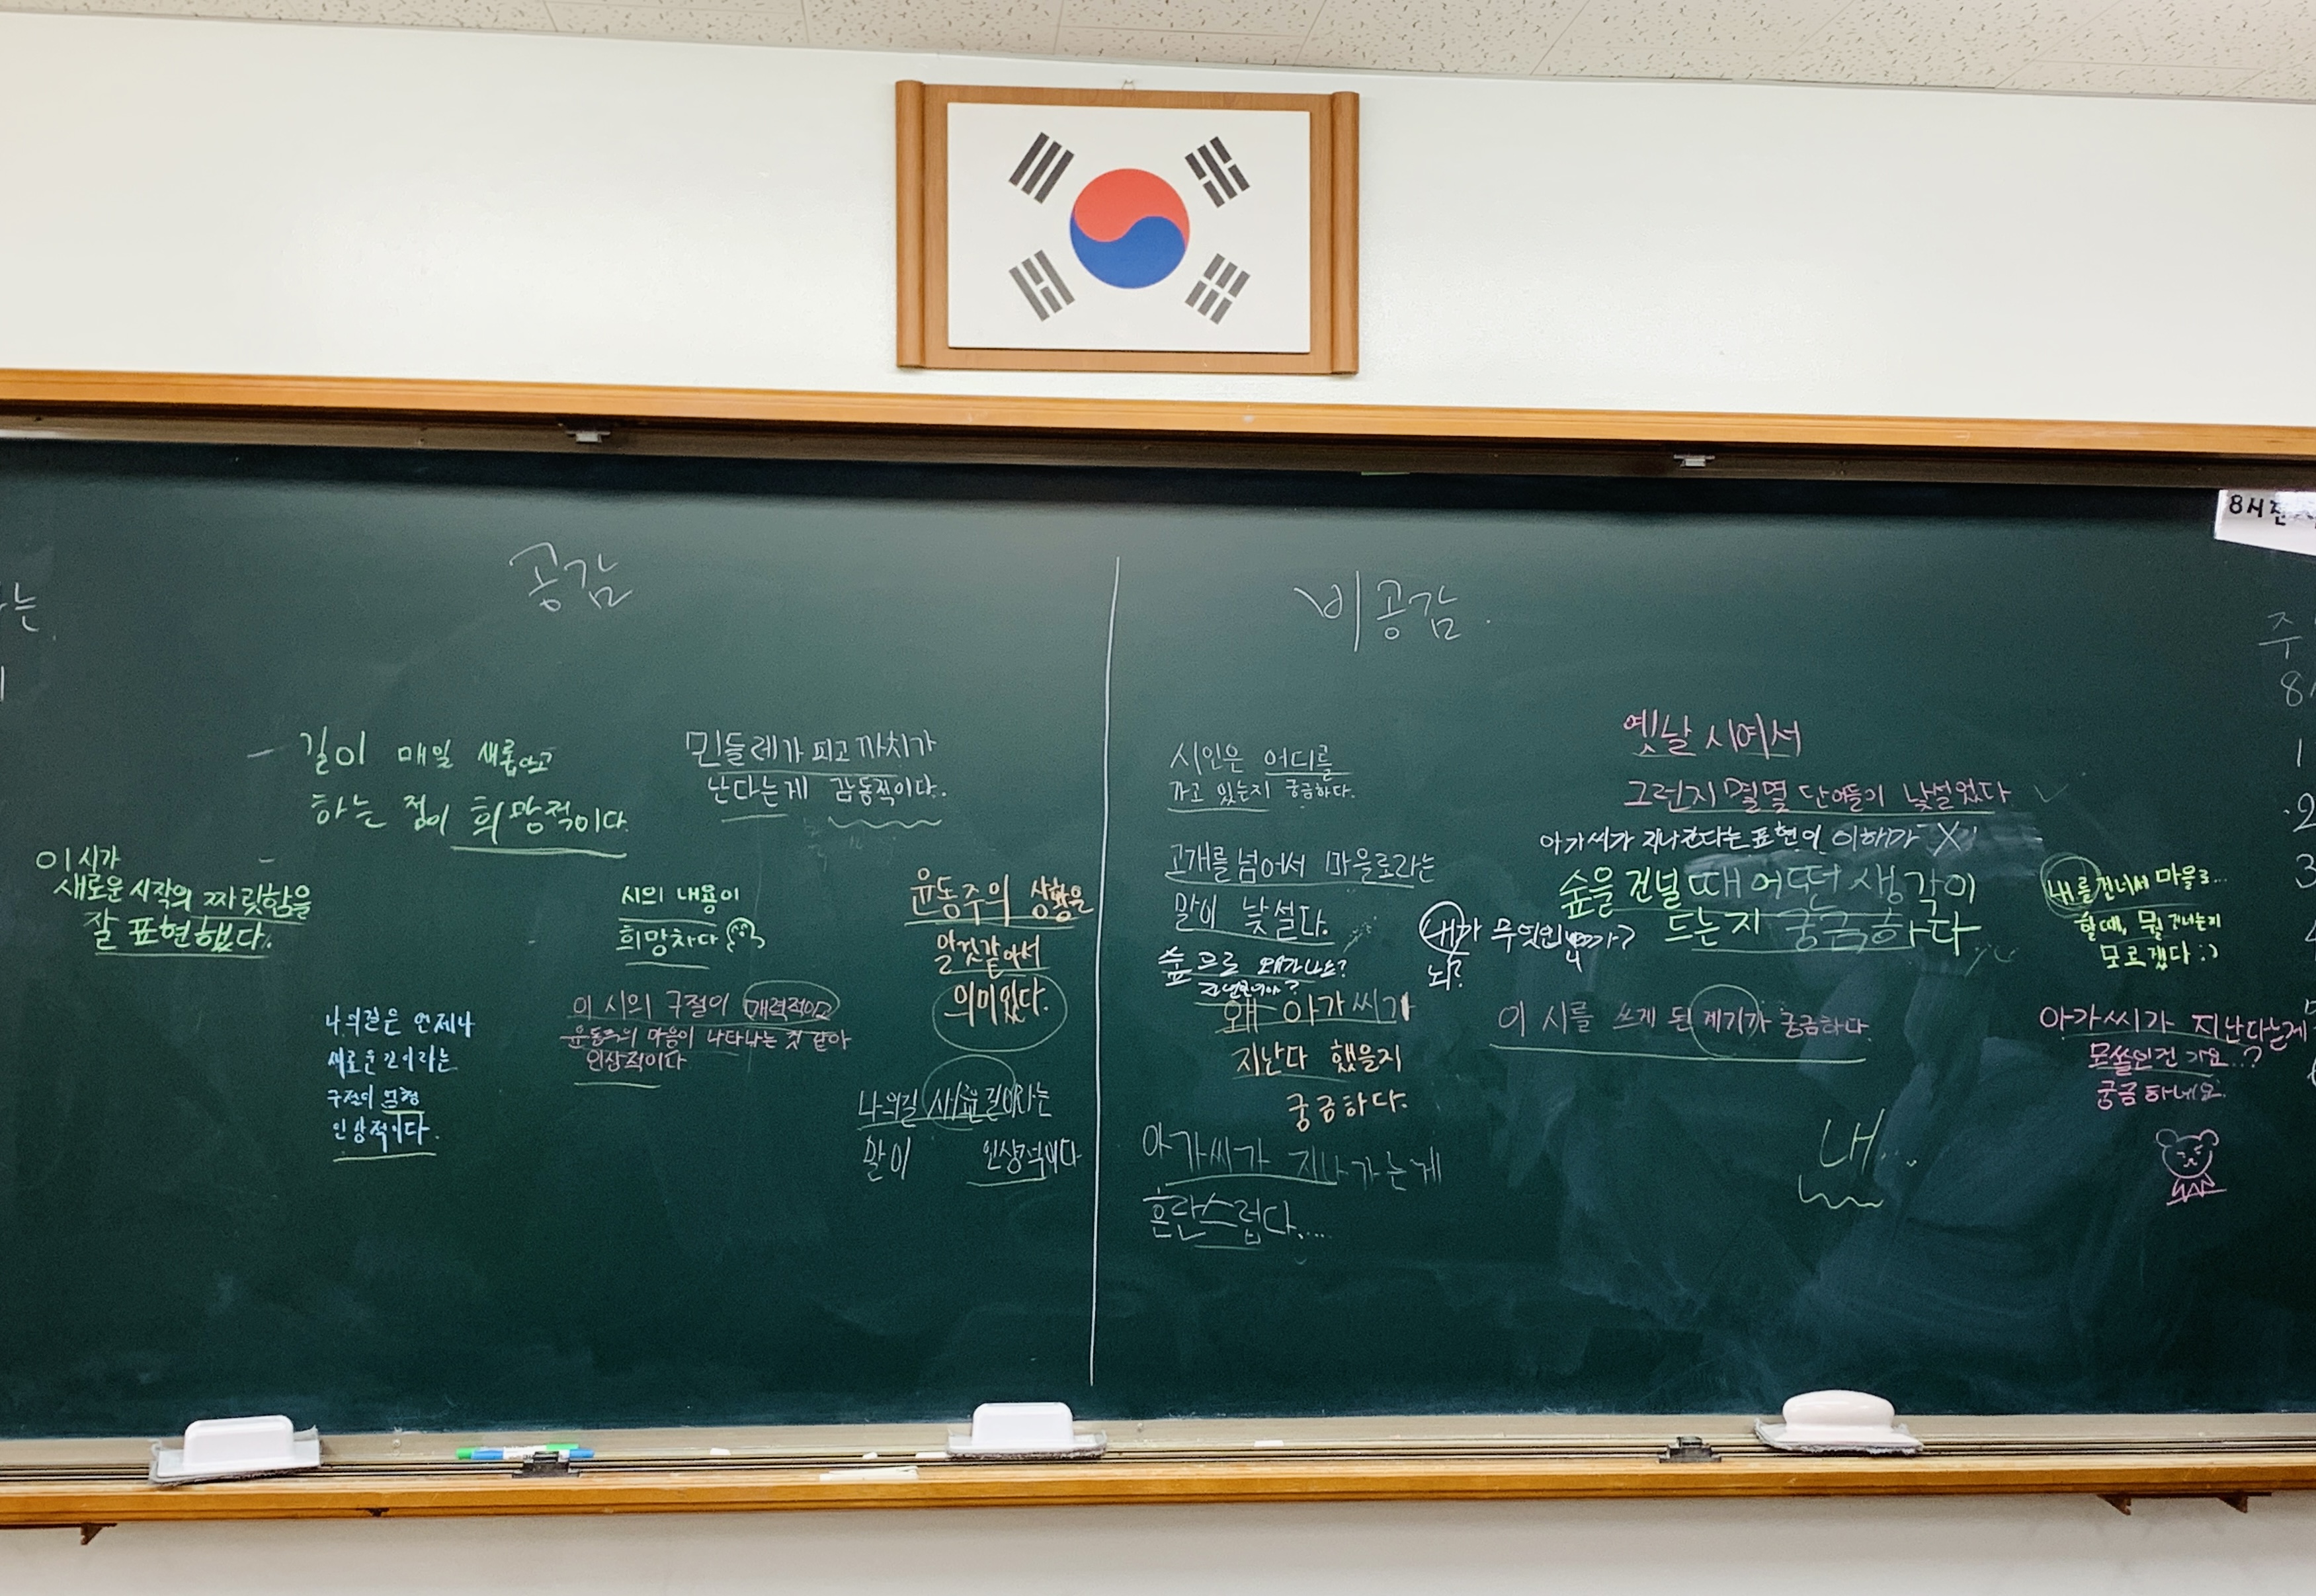 공감
길이 매일 새롭다고
하는 점이 희망적이다.
민들레가 피고 까치가
난다는게 감동적이다.
이 시가
새로운 시작의 짜릿함을
잘 표현했다.
시의 내용이
희망차다
윤동주의 상황을
알것같아서
의미있다.
나의길은 언제나
새로운길이라는
구절이
인상적이다.
이 시의 구절이 매력적이고
윤동주의 마음이 나타나는 것 같아
인상적이다
나의길 새로운길이라는
말이 인상적이다
비공감.
시인은 어디를
가고 있는지 궁금하다.
고개를 넘어서 마을로라는
말이 낯설다.
숲으로 왜가나요?
왜 아가씨가
지난다 했을지
궁금하다.
아가씨가 지나가는게
혼란스럽다....
옛날 시여서
그런지 몇몇 단어들이 낯설었다
아가씨가 지나간다는 표현의 이해가 X
숲을 건널때 어떤 생각이
드는지 궁금하다
내가 무엇인가?
뇌?
이 시를 쓰게 된 계기가 궁금하다.
내...
내를 건너서 마을로...
할때, 뭘 건너는지
모르겠다 :)
아가씨가 지난다는게
모쏠인건가요..?
궁금하네요.
8시